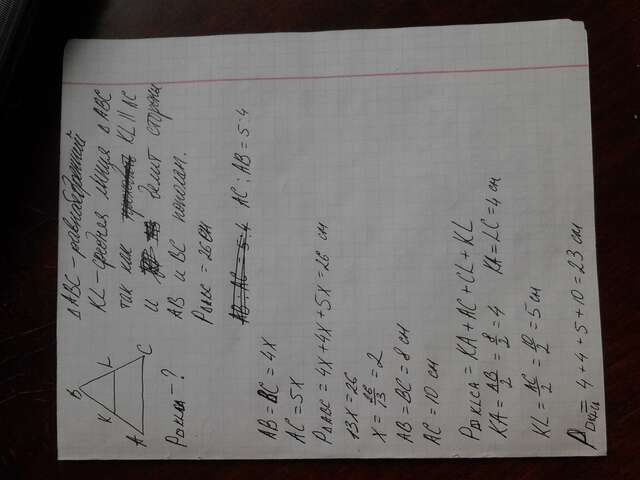 B
K L
A C
P□KLCA - ?
△ABC - равнобедренный
KL - средняя линия △ABC
так как KL || AC
и делит стороны
AB и BC пополам.
P△ABC = 26 см
AB : AC = 5:4 AC : AB = 5:4
AB = BC = 4x
AC = 5x
P△ABC = 4x + 4x + 5x = 26 см
13x = 26
x = 26/13 = 2
AB = BC = 8 см
AC = 10 см
P□KLCA = KA + AC + CL + KL
KA = AB/2 = 8/2 = 4 KA = LC = 4 см
KL = AC/2 = 10/2 = 5 см
P□KLCA = 4 + 4 + 5 + 10 = 23 см